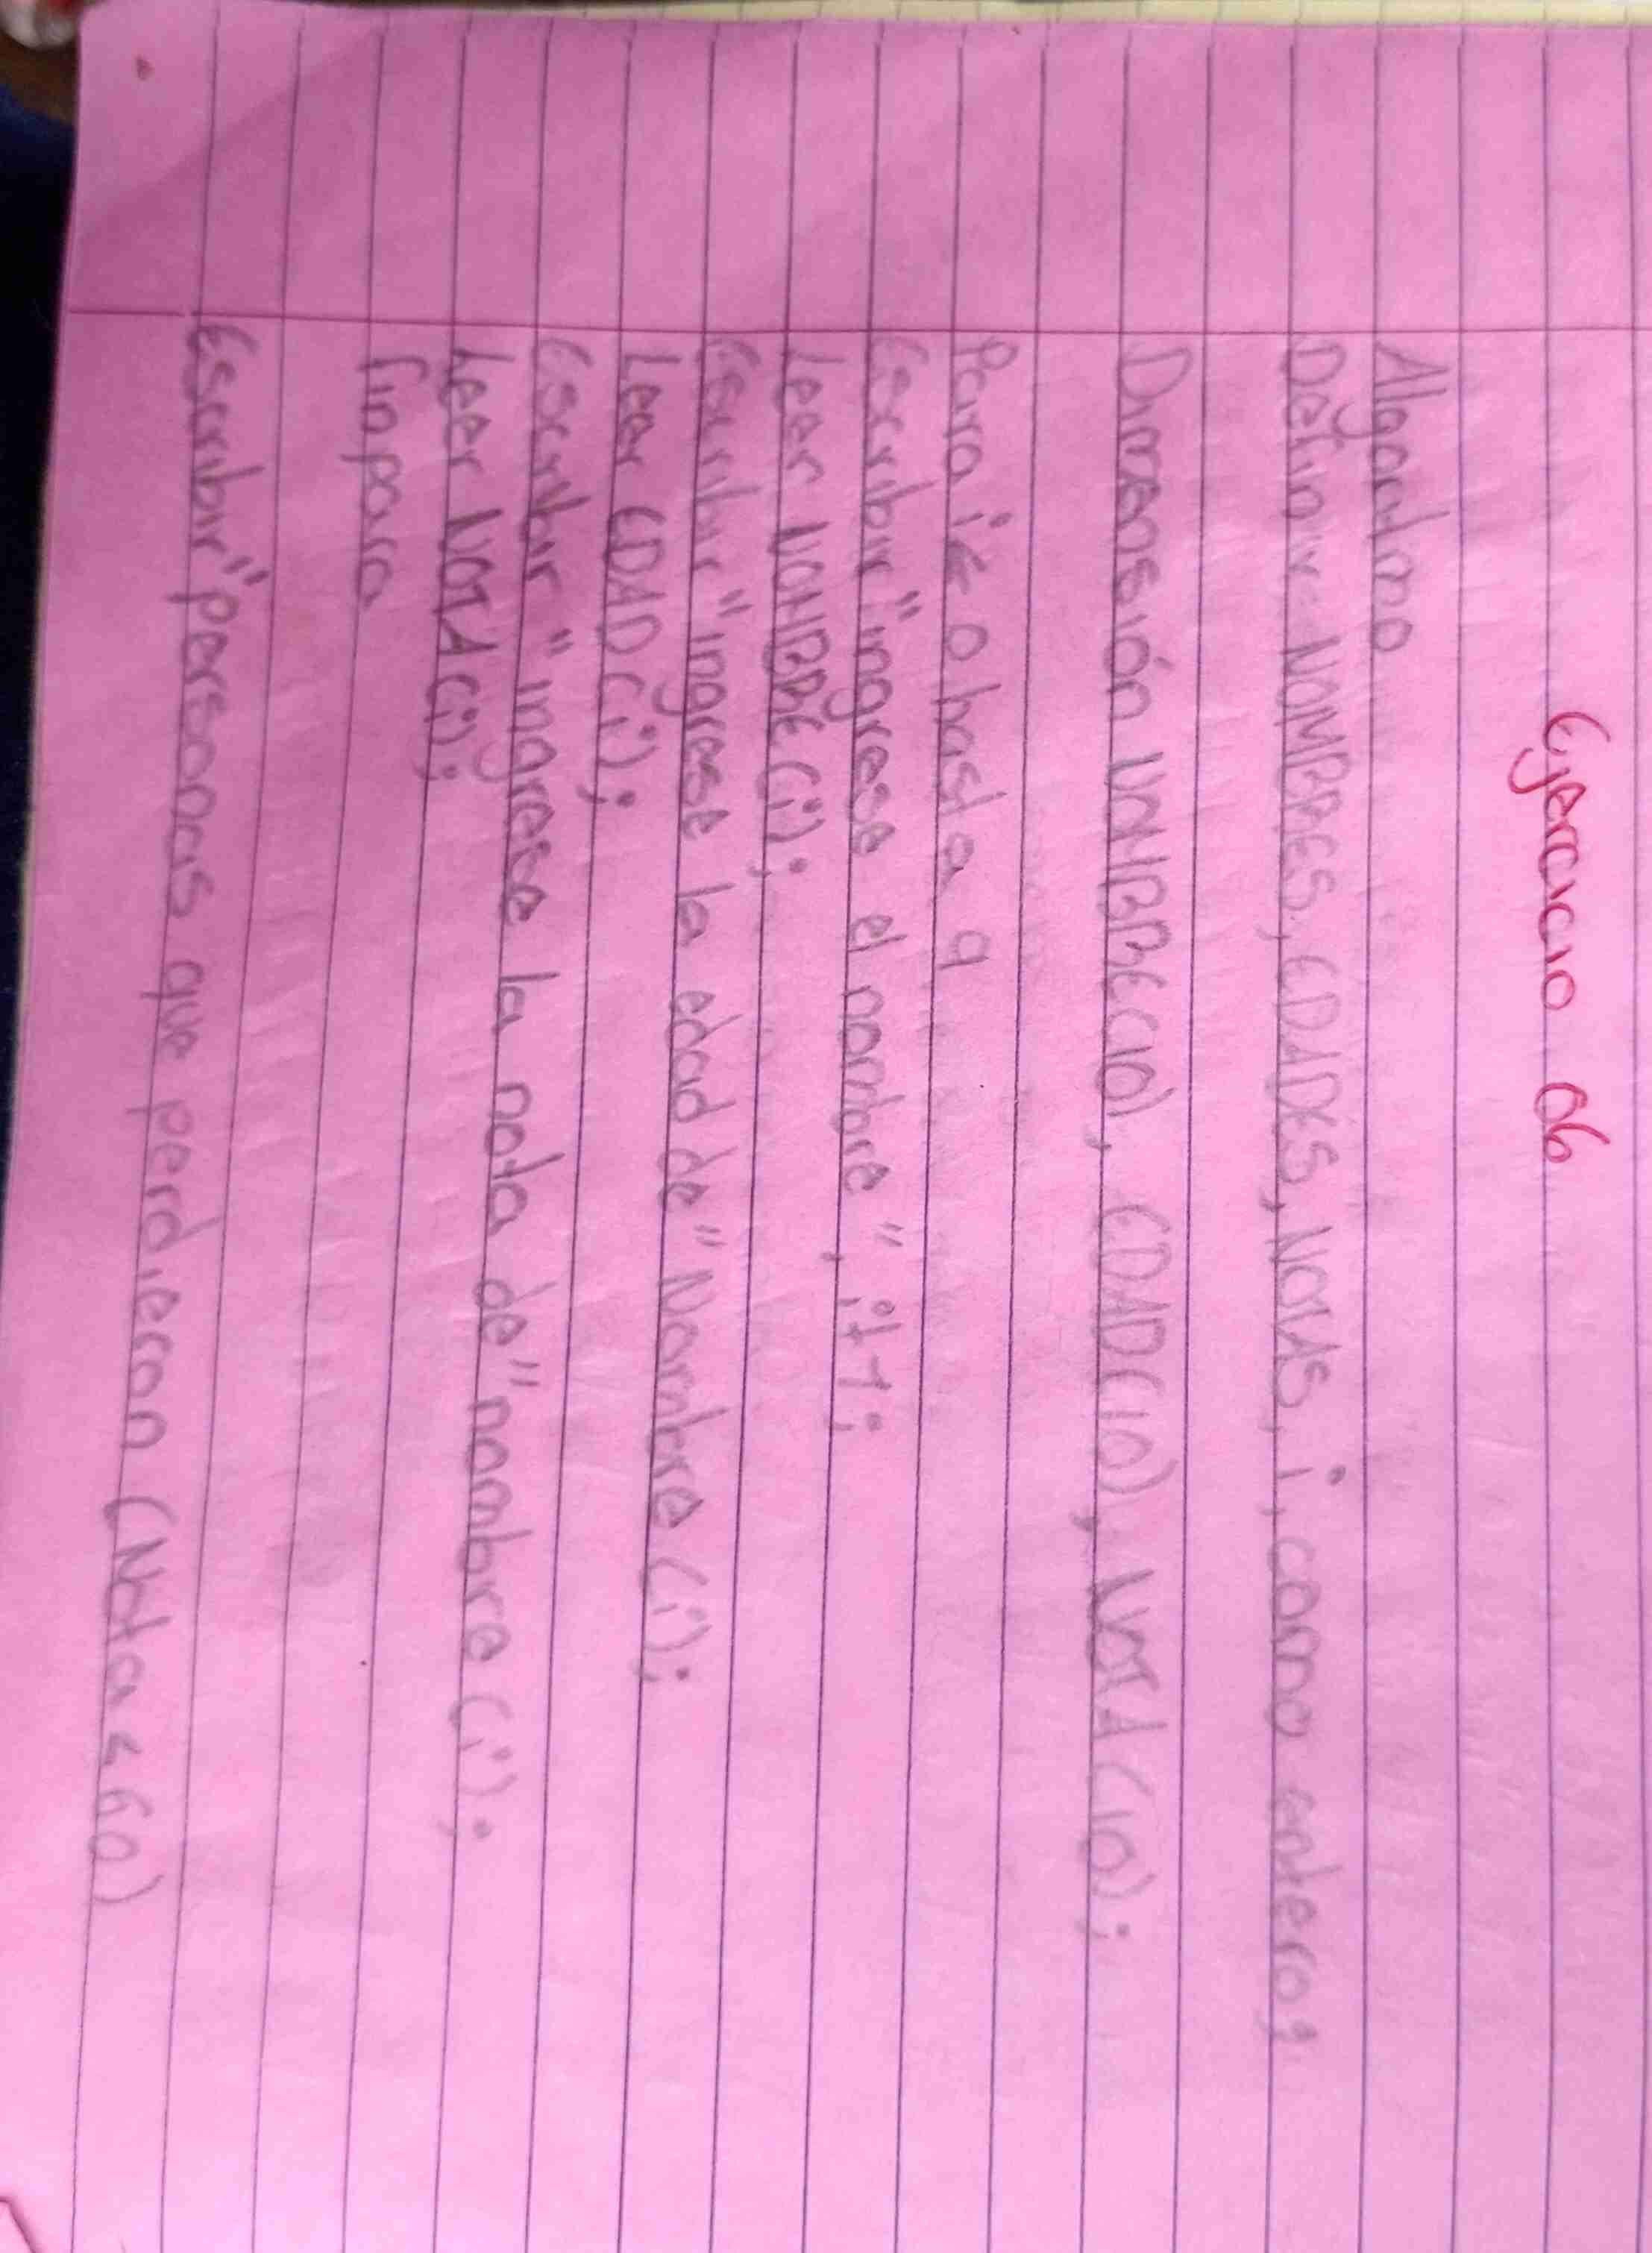 Ejercicio 06
Algoritmo
Definir NOMBRES, EDADES, NOTAS, i, como entero;
Dimensión NOMBRE(10), EDAD(10), NOTA(10);
Para i← 0 hasta 9
Escribir "ingrese el nombre", i+1;
Leer NOMBRE(i);
Escribir "ingrese la edad de" Nombre(i);
Leer EDAD(i);
Escribir "ingrese la nota de" nombre(i);
Leer NOTA(i);
Finpara
Escribir "personas que perdieron (Nota < 60)